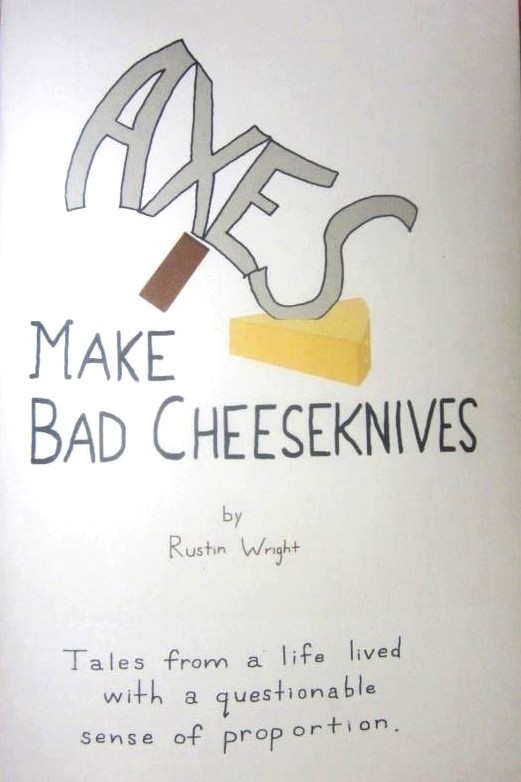 AXES
MAKE
BAD CHEESEKNIVES
by
Rustin Wright
Tales from a life lived
with a questionable
sense of proportion.